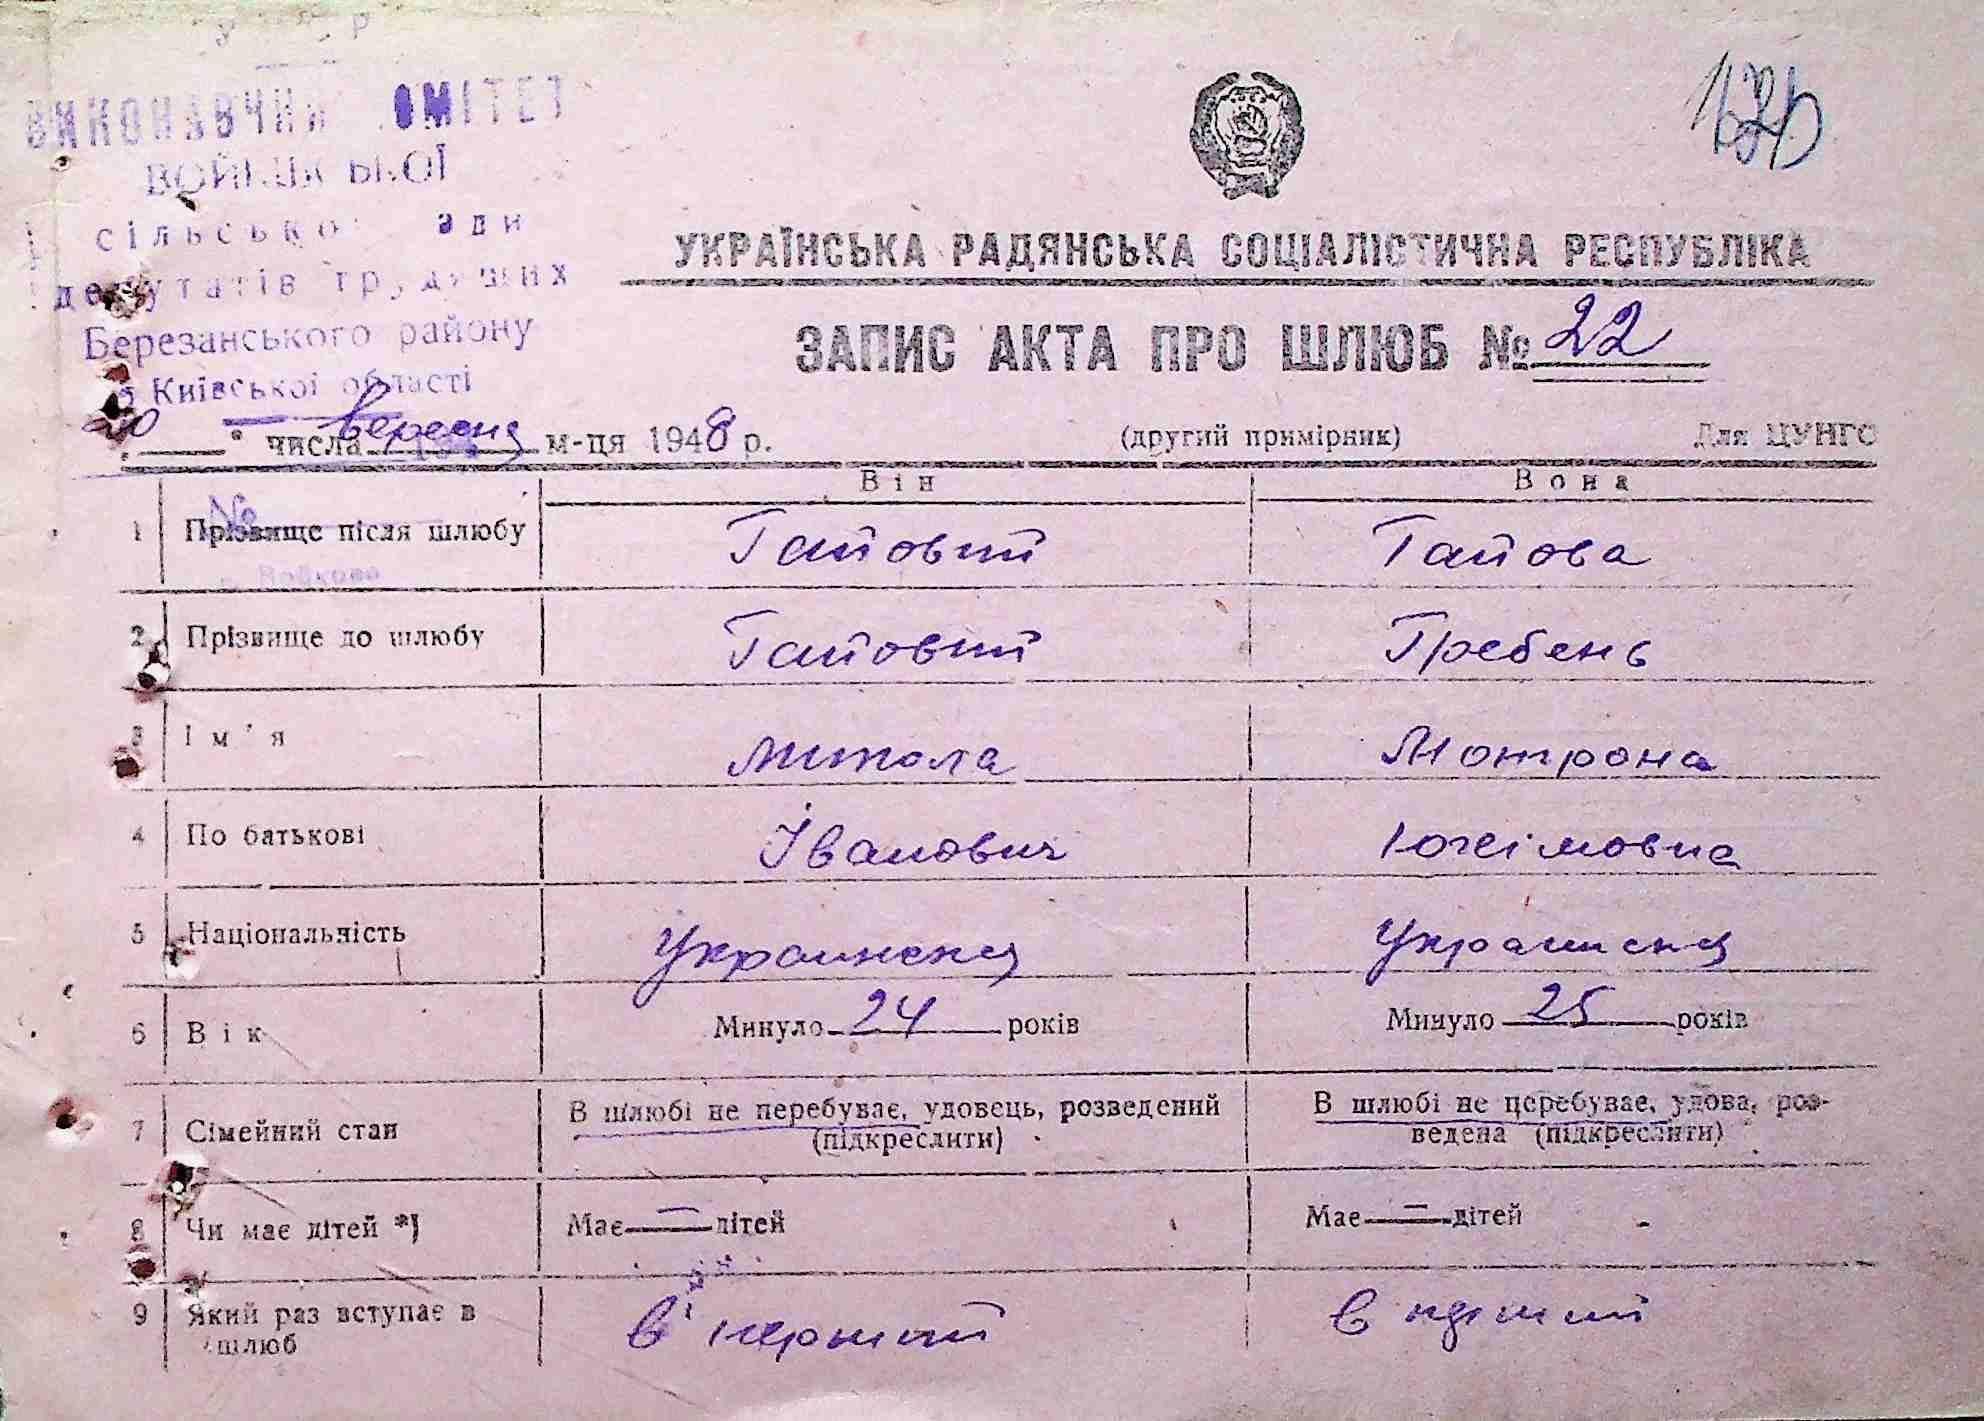 ВИКОНАВЧИЙ КОМІТЕТ
ВОЙКІВСЬКОЇ
сільської ради
депутатів трудящих
Березанського району
Київської області
УКРАЇНСЬКА РАДЯНСЬКА СОЦІАЛІСТИЧНА РЕСПУБЛІКА
ЗАПИС АКТА ПРО ШЛЮБ № 22
20 числа вересня м-ця 1948 р. (другий примірник) Для ЦУНГО
Він Вона
№
1 Прізвище після шлюбу Гайовий Гайова
с. Войкове
2 Прізвище до шлюбу Гайовий Гребень
3 Ім'я Микола Мотрона
4 По батькові Іванович Юхімовна
5 Національність Украинець Украинець
6 Вік Минуло 24 років Минуло 25 років
7 Сімейний стан В шлюбі не перебуває, удовець, розведений (підкреслити) В шлюбі не перебуває, удова, роз-
ведена (підкреслити)
8 Чи має дітей *) Має — дітей Має — дітей
9 Який раз вступає в
шлюб в перший в перший